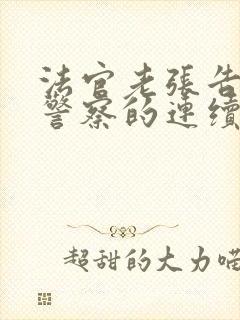 法官老張告
警察的連續
超甜的大力喵